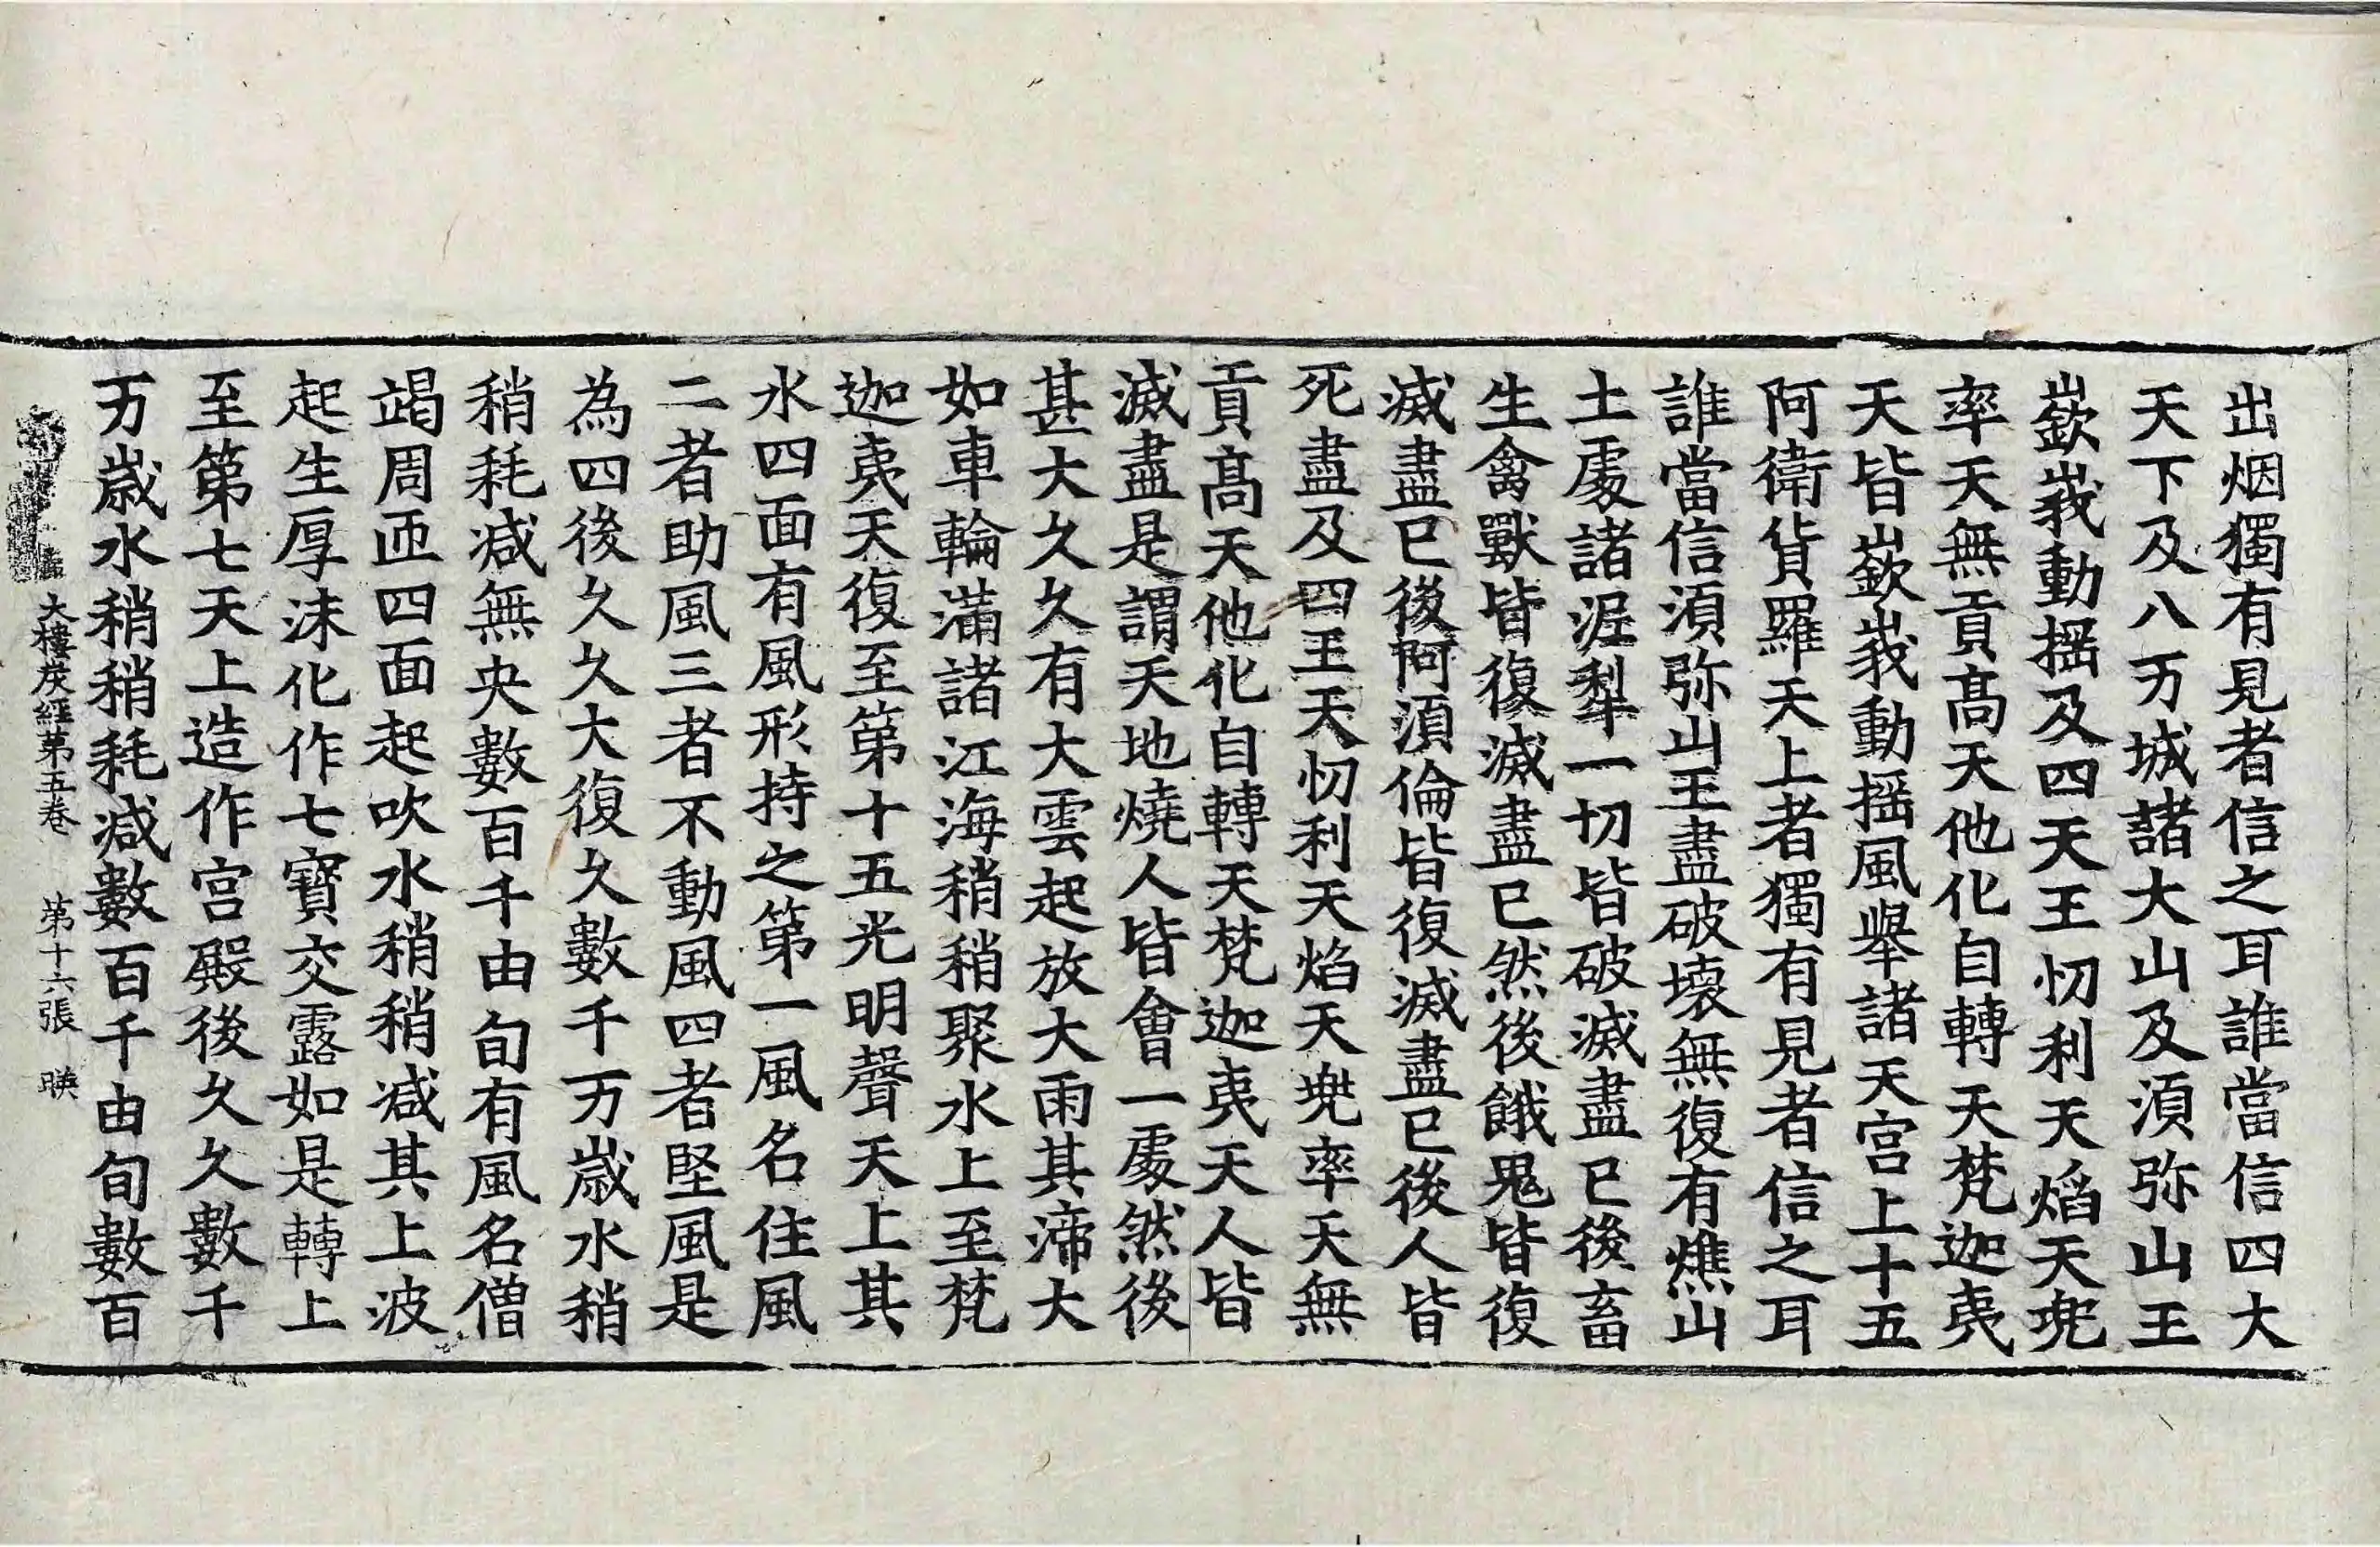 出烟獨有見者信之耳誰當信四大
天下及八万城諸大山及湏弥山王
嶔峩動揺及四天王忉利天焰天兠
率天無貢髙天他化自轉天梵迦夷
天皆嶔峩動揺風舉諸天宫上十五
阿衛貨羅天上者獨有見者信之耳
誰當信湏弥山王盡破壊無復有燋山
土處諸泥犁一切皆破滅盡已後畜
生禽獸皆復滅盡已然後餓鬼皆復
滅盡已後阿湏倫皆復滅盡已後人皆
死盡及四王天忉利天焰天兠率天無
貢髙天他化自轉天梵迦夷天人皆
滅盡是謂天地燒人皆會一處然後
甚大久久有大雲起放大雨其渧大
如車輪滿諸江海稍稍聚水上至梵
迦夷天復至第十五光明聲天上其
水四面有風形持之第一風名住風
二者助風三者不動風四者堅風是
為四後久久大復久數千万歳水稍
稍耗减無央數百千由旬有風名僧
竭周匝四面起吹水稍稍减其上波
起生厚沫化作七寳交露如是轉上
至第七天上造作宫殿後久久數千
万歳水稍稍耗减數百千由旬數百
大樓炭經第五卷 第十六張 映